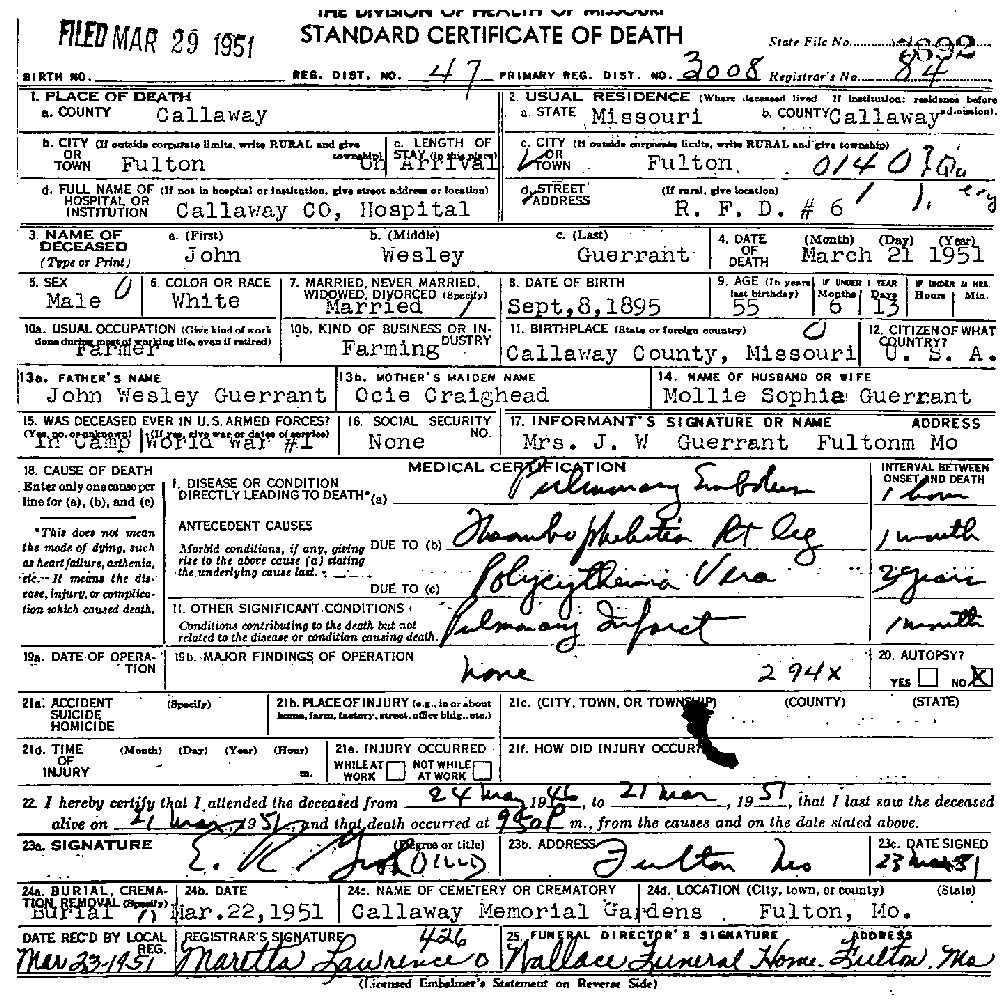 THE DIVISION OF HEALTH OF MISSOURI
FILED MAR 29 1951 STANDARD CERTIFICATE OF DEATH State File No.
BIRTH NO. REG. DIST. NO. 47 PRIMARY REG. DIST. NO. 3008 Registrar's No. 84
1. PLACE OF DEATH
a. COUNTY Callaway
2. USUAL RESIDENCE (Where deceased lived If institution: residence before admission).
a. STATE Missouri b. COUNTY Callaway
b. CITY (If outside corporate limits, write RURAL and give township)
OR TOWN Fulton
c. LENGTH OF STAY (in this place) On Arrival
c. CITY (If outside corporate limits, write RURAL and give township)
OR TOWN Fulton 0140
d. FULL NAME OF (If not in hospital or institution, give street address or location)
HOSPITAL OR INSTITUTION Callaway CO, Hospital
d. STREET ADDRESS (If rural, give location)
R. F. D. # 6
3. NAME OF DECEASED (Type or Print)
a. (First) John b. (Middle) Wesley c. (Last) Guerrant
4. DATE OF DEATH (Month) (Day) (Year)
March 21 1951
5. SEX Male 0
6. COLOR OR RACE White
7. MARRIED, NEVER MARRIED, WIDOWED, DIVORCED (Specify) Married 1
8. DATE OF BIRTH Sept,8,1895
9. AGE (In years last birthday) 55
IF UNDER 1 YEAR Months 6 Days 13
IF UNDER 24 HRS. Hours Min.
10a. USUAL OCCUPATION (Give kind of work done during most of working life, even if retired) Farmer
10b. KIND OF BUSINESS OR INDUSTRY Farming
11. BIRTHPLACE (State or foreign country) 0
Callaway County, Missouri
12. CITIZEN OF WHAT COUNTRY? U. S. A.
13a. FATHER'S NAME
John Wesley Guerrant
13b. MOTHER'S MAIDEN NAME
Ocie Craighead
14. NAME OF HUSBAND OR WIFE
Mollie Sophia Guerrant
15. WAS DECEASED EVER IN U.S. ARMED FORCES?
(Yes, no, or unknown) In Camp (If yes, give war or dates of service) World War #1
16. SOCIAL SECURITY NO. None
17. INFORMANT'S SIGNATURE OR NAME ADDRESS
Mrs. J. W Guerrant Fultonm Mo
18. CAUSE OF DEATH
Enter only one cause per line for (a), (b), and (c)
*This does not mean the mode of dying, such as heart failure, asthenia, etc. It means the disease, injury, or complication which caused death.
MEDICAL CERTIFICATION
INTERVAL BETWEEN ONSET AND DEATH
I. DISEASE OR CONDITION DIRECTLY LEADING TO DEATH* (a) Pulmonary Embolism 1 hour
ANTECEDENT CAUSES
Morbid conditions, if any, giving rise to the above cause (a) stating the underlying cause last.
DUE TO (b) Thrombophlebitis Rt leg 1 month
DUE TO (c) Polycythemia Vera 3 years
II. OTHER SIGNIFICANT CONDITIONS
Conditions contributing to the death but not related to the disease or condition causing death.
Pulmonary Infarct 1 month
19a. DATE OF OPERATION
19b. MAJOR FINDINGS OF OPERATION
none 294x
20. AUTOPSY?
YES NO X
21a. ACCIDENT SUICIDE HOMICIDE (Specify)
21b. PLACE OF INJURY (e.g., in or about home, farm, factory, street, office bldg., etc.)
21c. (CITY, TOWN, OR TOWNSHIP) (COUNTY) (STATE)
21d. TIME OF INJURY (Month) (Day) (Year) (Hour) m.
21e. INJURY OCCURRED
WHILE AT WORK NOT WHILE AT WORK
21f. HOW DID INJURY OCCUR?
22. I hereby certify that I attended the deceased from 24 May 1946, to 21 Mar, 1951, that I last saw the deceased
alive on 21 Mar, 1951, and that death occurred at 950P m., from the causes and on the date stated above.
23a. SIGNATURE (Degree or title)
E. R.
23b. ADDRESS
Fulton Mo
23c. DATE SIGNED
23 Mar 51
24a. BURIAL, CREMATION, REMOVAL (Specify) Burial
24b. DATE
Mar.22,1951
24c. NAME OF CEMETERY OR CREMATORY
Callaway Memorial Gardens
24d. LOCATION (City, town, or county) (State)
Fulton, Mo.
DATE REC'D BY LOCAL REG.
Mar 23-1951
REGISTRAR'S SIGNATURE 426
Maretta Lawrence
25. FUNERAL DIRECTOR'S SIGNATURE ADDRESS
Wallace Funeral Home. Fulton. Mo
(Licensed Embalmer's Statement on Reverse Side)